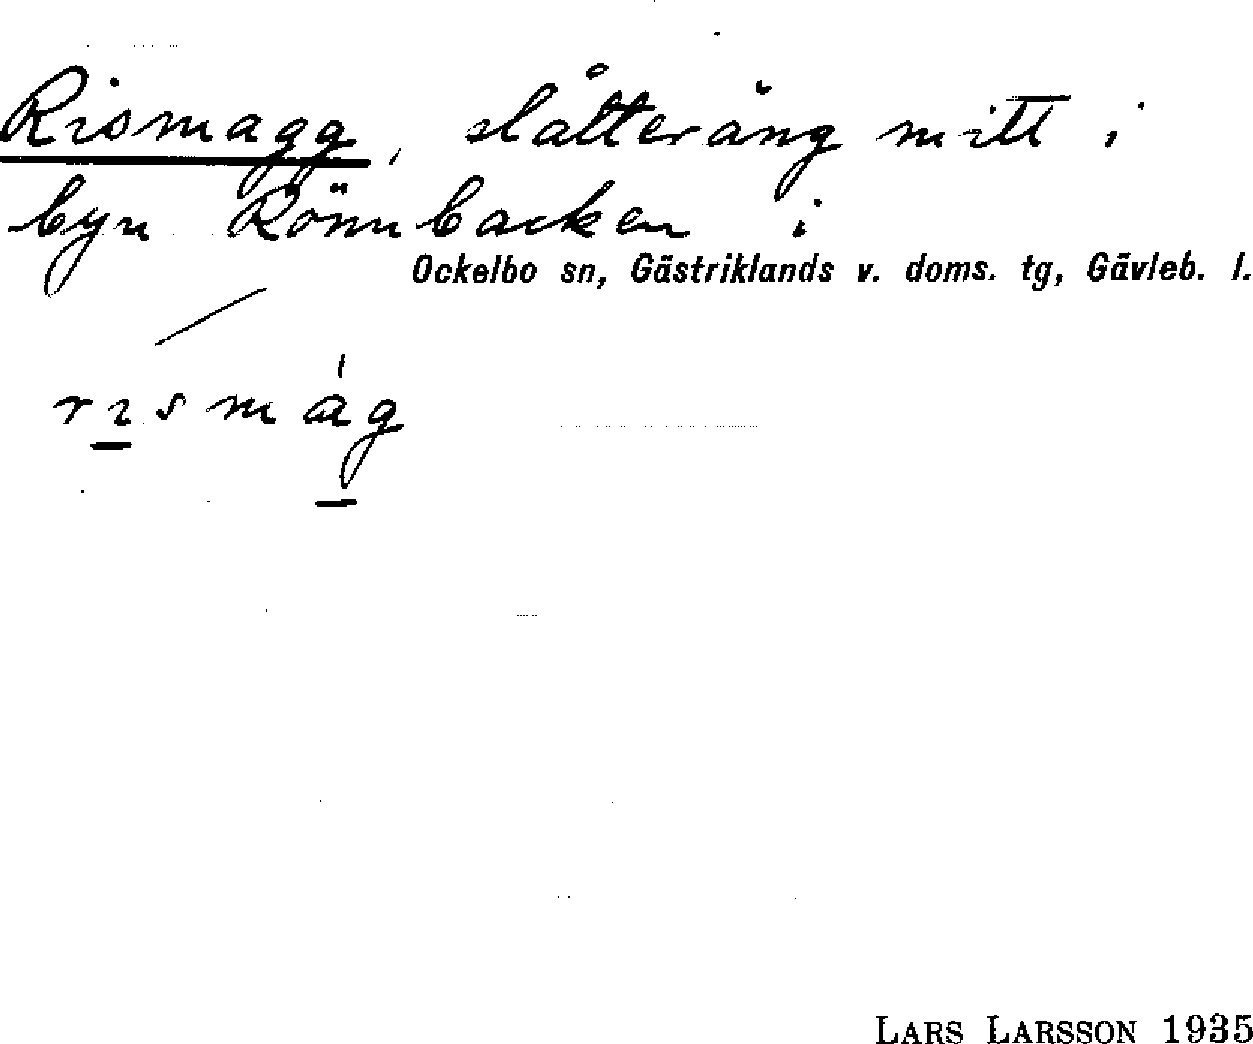 Rismagg, slåtteräng mitt i
byn Rönnbacken i
Ockelbo sn, Gästriklands v. doms. tg, Gävleb. l.
rismág
LARS LARSSON 1935